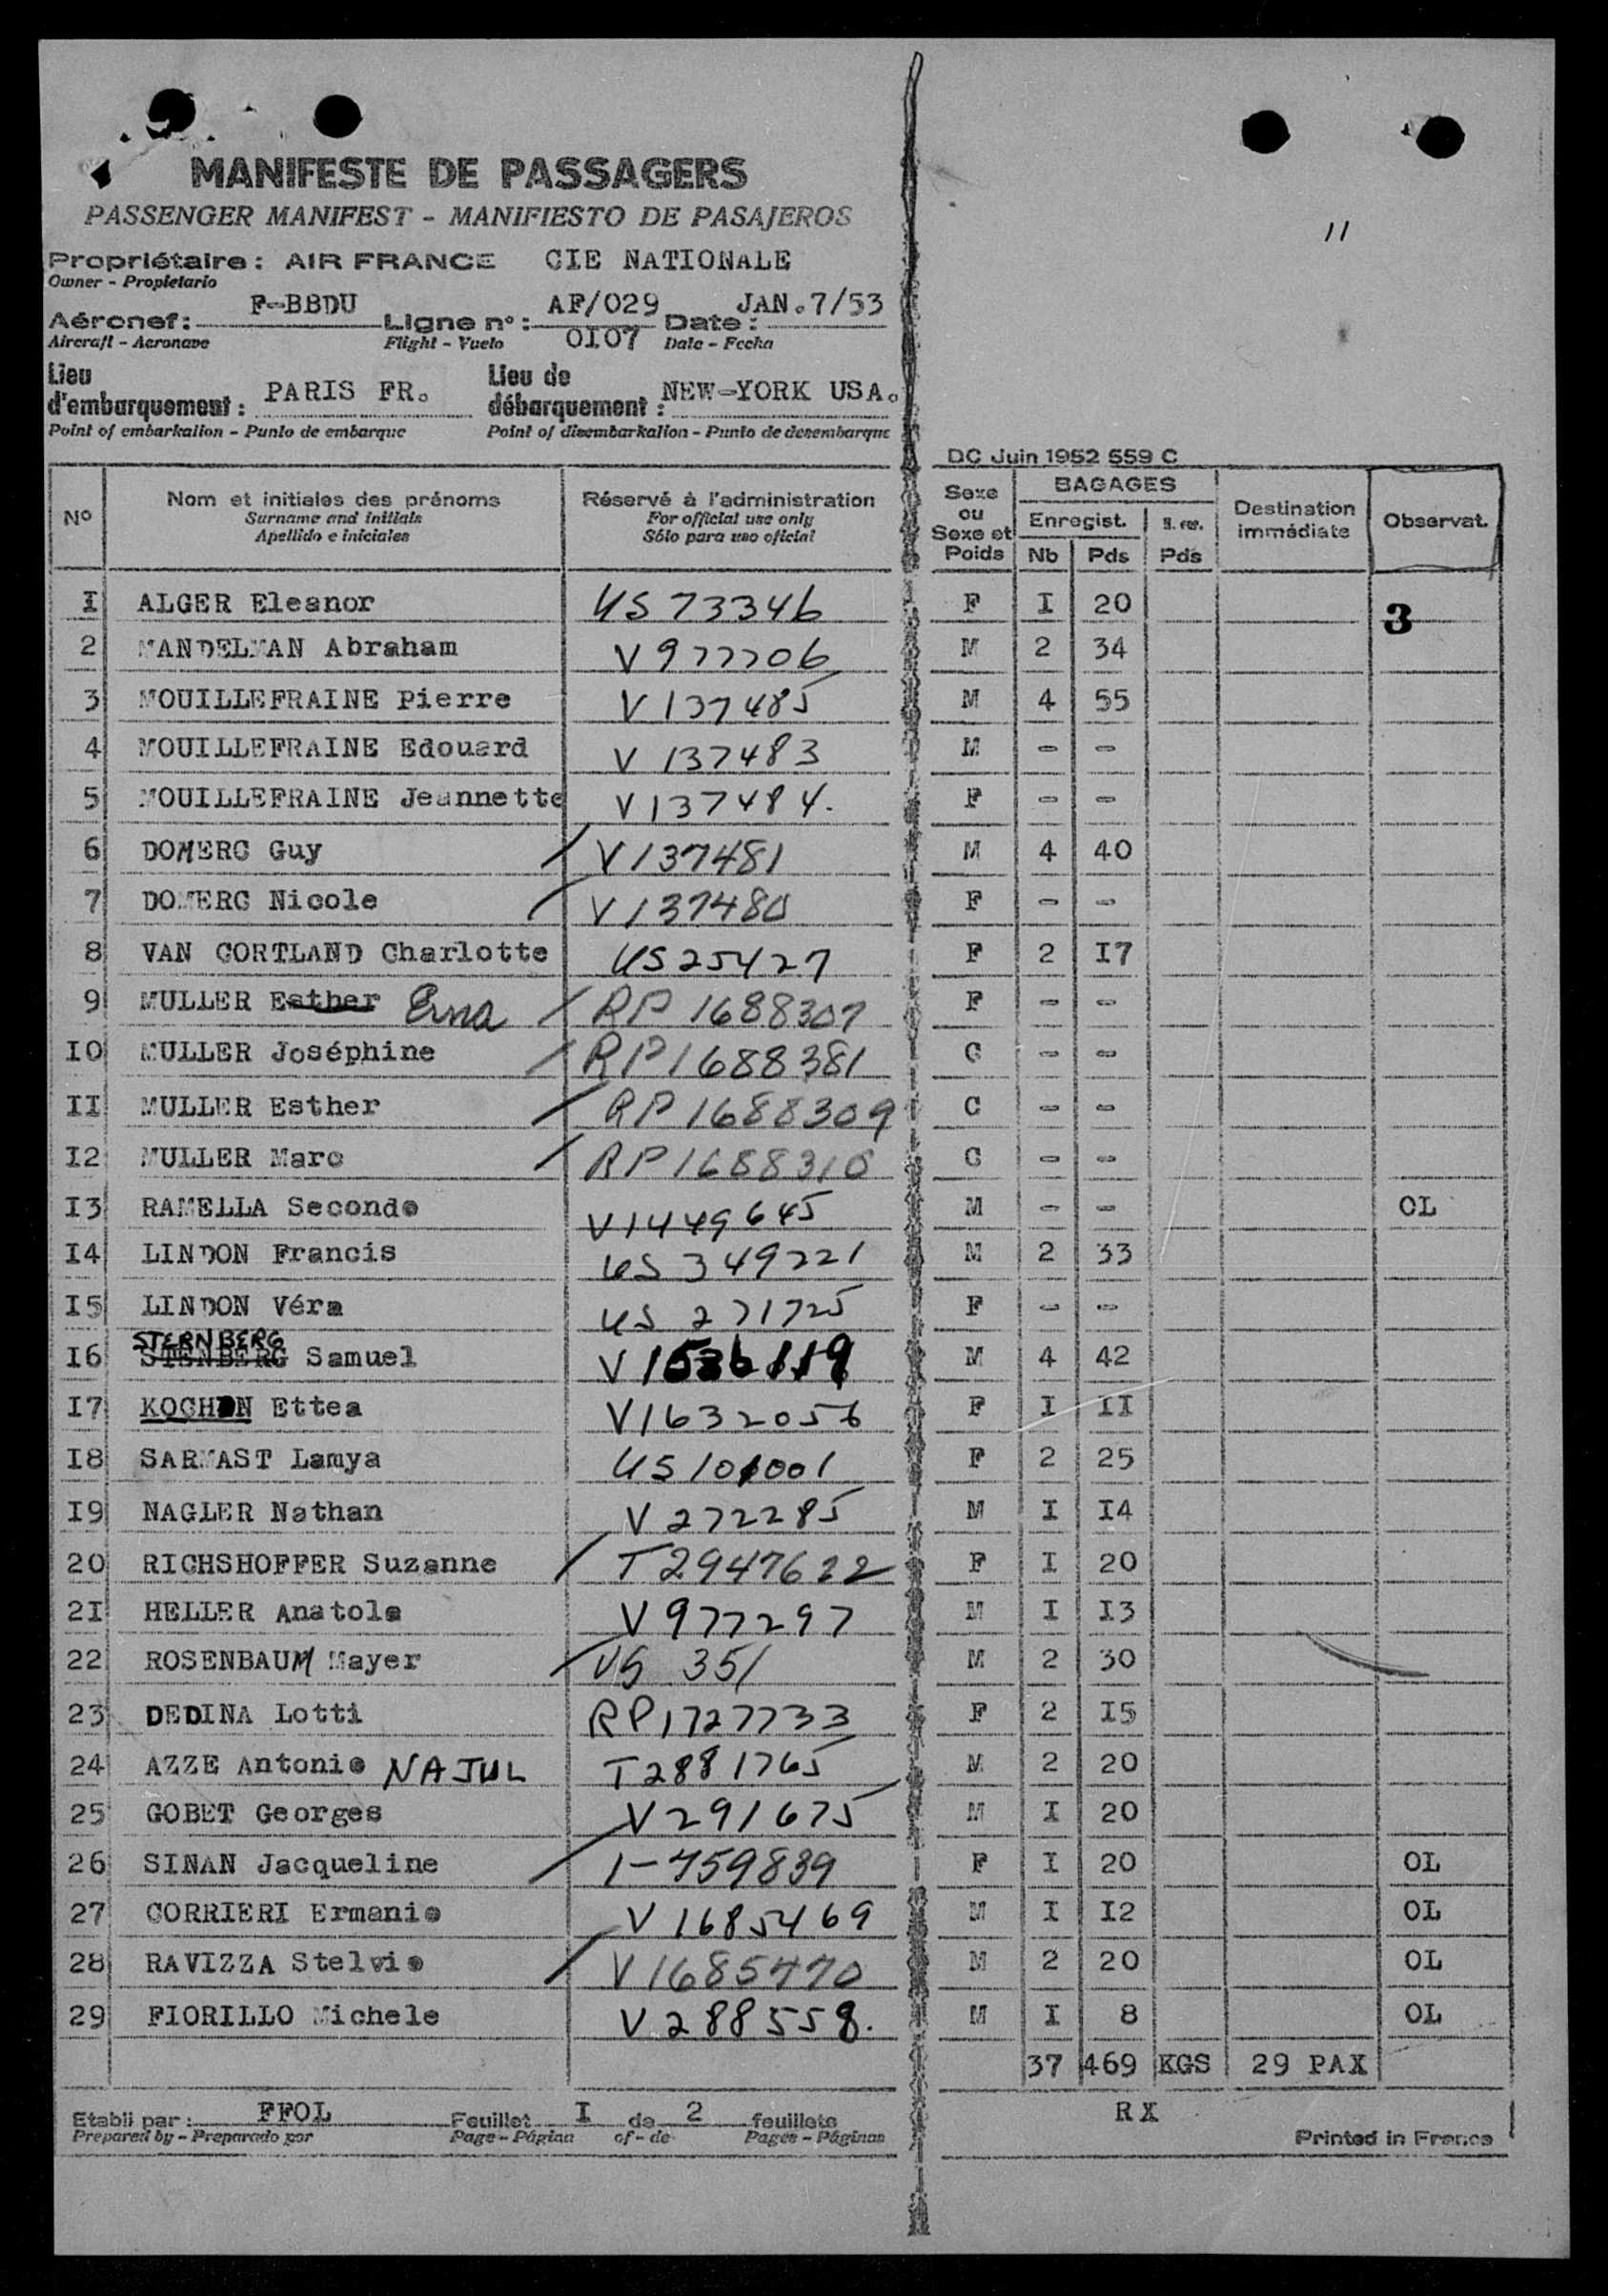 11
MANIFESTE DE PASSAGERS
PASSENGER MANIFEST - MANIFIESTO DE PASAJEROS
Propriétaire : AIR FRANCE CIE NATIONALE
Owner - Propietario
F-BBDU AF/029 JAN.7/53
Aéronef : Ligne n° : 0107 Date :
Aircraft - Aeronave Flight - Vuelo Date - Fecha
Lieu d'embarquement : PARIS FR. Lieu de débarquement : NEW-YORK USA.
Point of embarkation - Punto de embarque Point of disembarkation - Punto de desembarque
DC Juin 1952 559 C
N° Nom et initiales des prénoms Réservé à l'administration Sexe ou Sexe et Poids BAGAGES Destination immédiate Observat.
Surname and initials For official use only Enregist.
Apellido e iniciales Sólo para uso oficial Nb Pds Pds
I ALGER Eleanor US 73346 F I 20 3
2 MANDELMAN Abraham V 977706 M 2 34
3 MOUILLEFRAINE Pierre V 137485 M 4 55
4 MOUILLEFRAINE Edouard V 137483 M - -
5 MOUILLEFRAINE Jeannette V 137484. F - -
6 DOMERC Guy / V 137481 M 4 40
7 DOMERC Nicole / V 137480 F - -
8 VAN CORTLAND Charlotte US 25427 F 2 I7
9 MULLER Esther Erna / RP 1688307 F - -
IO MULLER Joséphine / RP 1688381 C - -
II MULLER Esther / RP 1688309 C - -
I2 MULLER Marc / RP 1688310 C - -
I3 RAMELLA Secondo V 1449645 M - - OL
I4 LINDON Francis US 349221 M 2 33
I5 LINDON Véra US 271725 F - -
STERNBERG
I6 STENBERG Samuel V 1536119 M 4 42
I7 KOCHEN Ettea V 1632056 F I II
I8 SARMAST Lamya US 101001 F 2 25
I9 NAGLER Nathan V 272285 M I I4
20 RICHSHOFFER Suzanne / T 2947622 F I 20
2I HELLER Anatole V 977297 M I I3
22 ROSENBAUM Mayer / VS 351 M 2 30
23 DEDINA Lotti RP 1727733 F 2 I5
24 AZZE Antonio NAJUL T 2881765 M 2 20
25 GOBET Georges V 291675 M I 20
26 SINAN Jacqueline / I-759839 F I 20 OL
27 CORRIERI Ermanio V 1685469 M I I2 OL
28 RAVIZZA Stelvio / V 1685470 M 2 20 OL
29 FIORILLO Michele V 288558. M I 8 OL
37 469 KGS 29 PAX
Etabli par : FFOL Feuillet I de 2 feuillets RX
Prepared by - Preparado por Page - Página of - de Pages - Páginas Printed in France